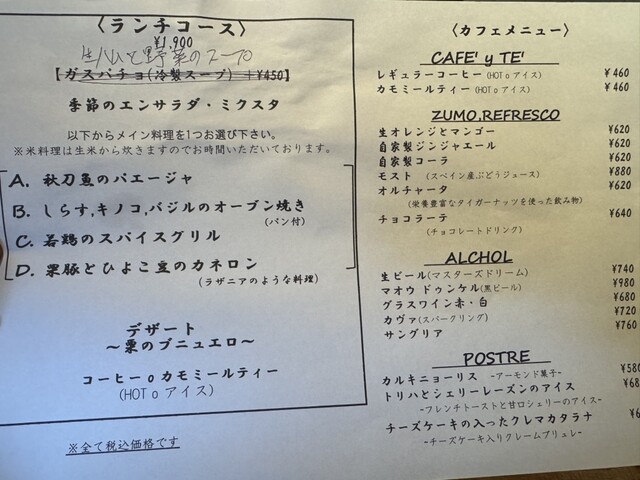 〈ランチコース〉
¥1,900
生ハムと野菜のスープ
【ガスパチョ(冷製スープ) +¥450】
季節のエンサラダ・ミクスタ
以下からメイン料理を1つお選び下さい。
※米料理は生米から炊きますのでお時間いただいております。
A. 秋刀魚のパエージャ
B. しらす,キノコ,バジルのオーブン焼き
(パン付)
C. 若鶏のスパイスグリル
D. 栗豚とひよこ豆のカネロン
(ラザニアのような料理)
デザート
～栗のブニュエロ～
コーヒー o カモミールティー
(HOT o アイス)
※全て税込価格です
〈カフェメニュー〉
CAFE' y TE'
レギュラーコーヒー(HOT o アイス) ¥460
カモミールティー(HOT o アイス) ¥460
ZUMO.REFRESCO
生オレンジとマンゴー ¥620
自家製ジンジャエール ¥620
自家製コーラ ¥620
モスト (スペイン産ぶどうジュース) ¥880
オルチャータ ¥620
(栄養豊富なタイガーナッツを使った飲み物)
チョコラーテ ¥640
(チョコレートドリンク)
ALCHOL
生ビール(マスターズドリーム) ¥740
マオウ ドゥンケル(黒ビール) ¥980
グラスワイン赤・白 ¥680
カヴァ(スパークリング) ¥720
サングリア ¥760
POSTRE
カルキニョーリス -アーモンド菓子- ¥580
トリハとシェリーレーズンのアイス ¥68
-フレンチトーストと甘口シェリーのアイス-
チーズケーキの入ったクレマカタラナ ¥6
-チーズケーキ入りクレームブリュレ-